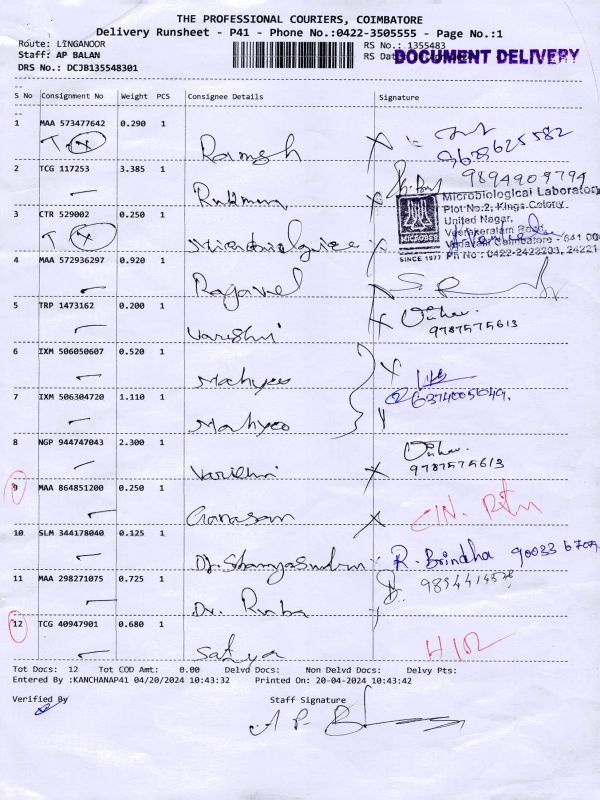 THE PROFESSIONAL COURIERS, COIMBATORE
Delivery Runsheet - P41 - Phone No.:0422-3505555 - Page No.:1
Route: LINGANOOR RS No.: 1355483
Staff: AP BALAN RS Dat DOCUMENT DELIVERY
DRS No.: DCJB135548301
S No Consignment No Weight PCS Consignee Details Signature
1 MAA 573477642 0.290 1
T X Ramesh X 9638625582
2 TCG 117253 3.385 1 9894909794
Rukman X
Microbiological Laboratory
Plot No:2, Kings Colony,
3 CTR 529002 0.250 1 United Nagar,
T X X Veerakeralam Road,
Vadavalli Coimbatore - 641 00
MICROBES
4 MAA 572936297 0.920 1 SINCE 1977 Ph No : 0422-2423203, 24221
Rajavel
5 TRP 1473162 0.200 1
Varishni X 9787575613
6 IXM 506050607 0.520 1
Mahyoo X
7 IXM 506304720 1.110 1 6374005049.
Mahyoo
8 NGP 944747043 2.300 1
Varishni X 9787575613
9 MAA 864851200 0.250 1
Ganasan X C/N. Rtn
10 SLM 344178040 0.125 1
Dr. R. Brindha 90033
11 MAA 298271075 0.725 1
Dr.
12 TCG 40947901 0.680 1
Satya
Tot Docs: 12 Tot COD Amt: 0.00 Delvd Docs: Non Delvd Docs: Delvy Pts:
Entered By :KANCHANAP41 04/20/2024 10:43:32 Printed On: 20-04-2024 10:43:42
Verified By Staff Signature
A P. B